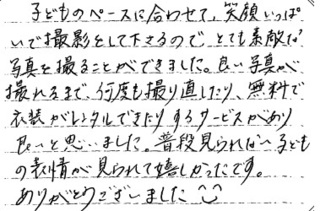 子どものペースに合わせて、笑顔いっぱ
いで撮影をして下さるので、とても素敵な
写真を撮ることができました。良い写真が
撮れるまで、何度も撮り直したり、無料で
衣装がレンタルできたりするサービスがあり
良いと思いました。普段見られない子ども
の表情が見られて嬉しかったです。
ありがとうございました